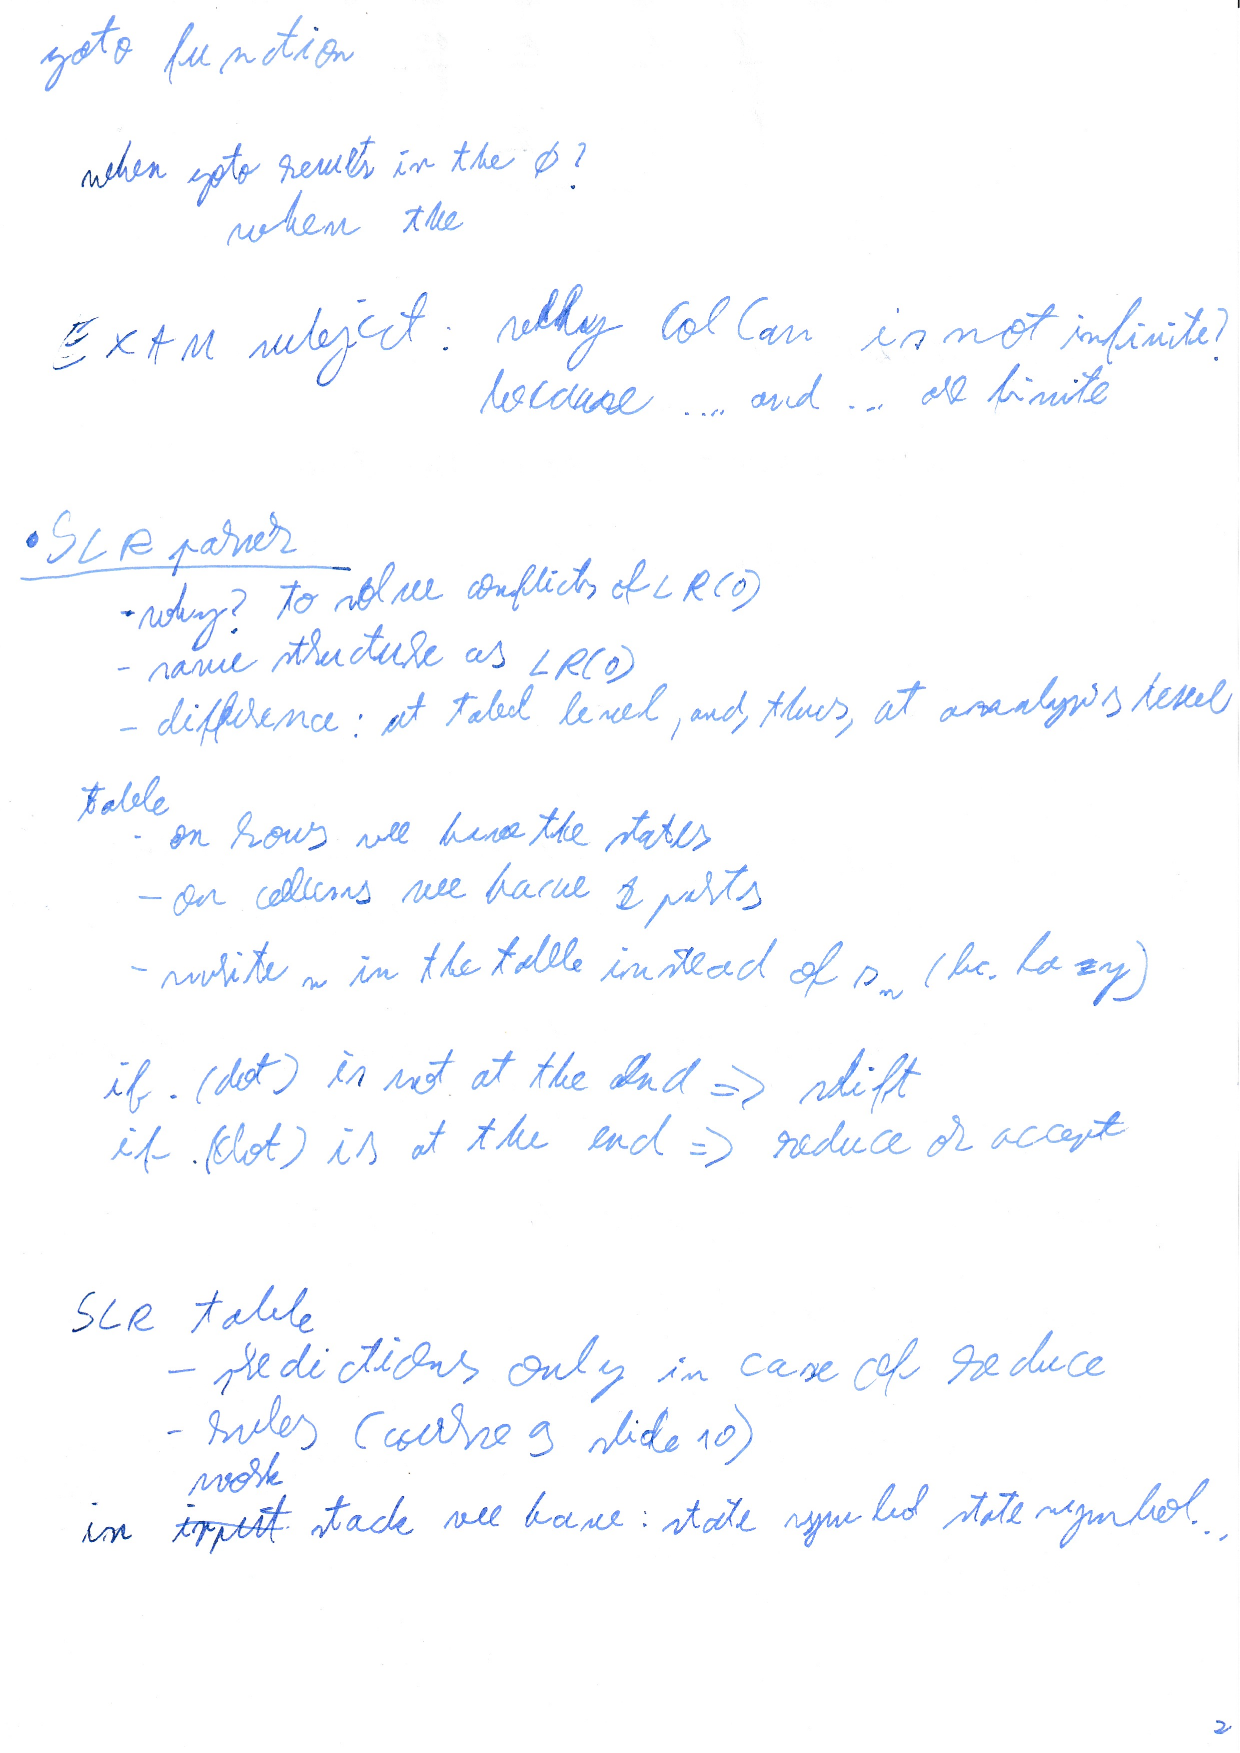 goto function
when goto results in the ∅?
when the
EXAM subject: why ColCan is not infinite?
because .... and ... are finite
• SLR parser
- why? to solve conflicts of LR(0)
- same structure as LR(0)
- difference: at tabel level, and, thus, at analysis level
table
- on rows we have the states
- on colums we have 2 parts
- write n in the table instead of sₙ (bc. lazy)
if . (dot) is not at the end => shift
if .(dot) is at the end => reduce or accept
SLR table
- predictions only in case of reduce
- rules (course 9 slide 10)
work
in input stack we have: state symbol state symbol...
2